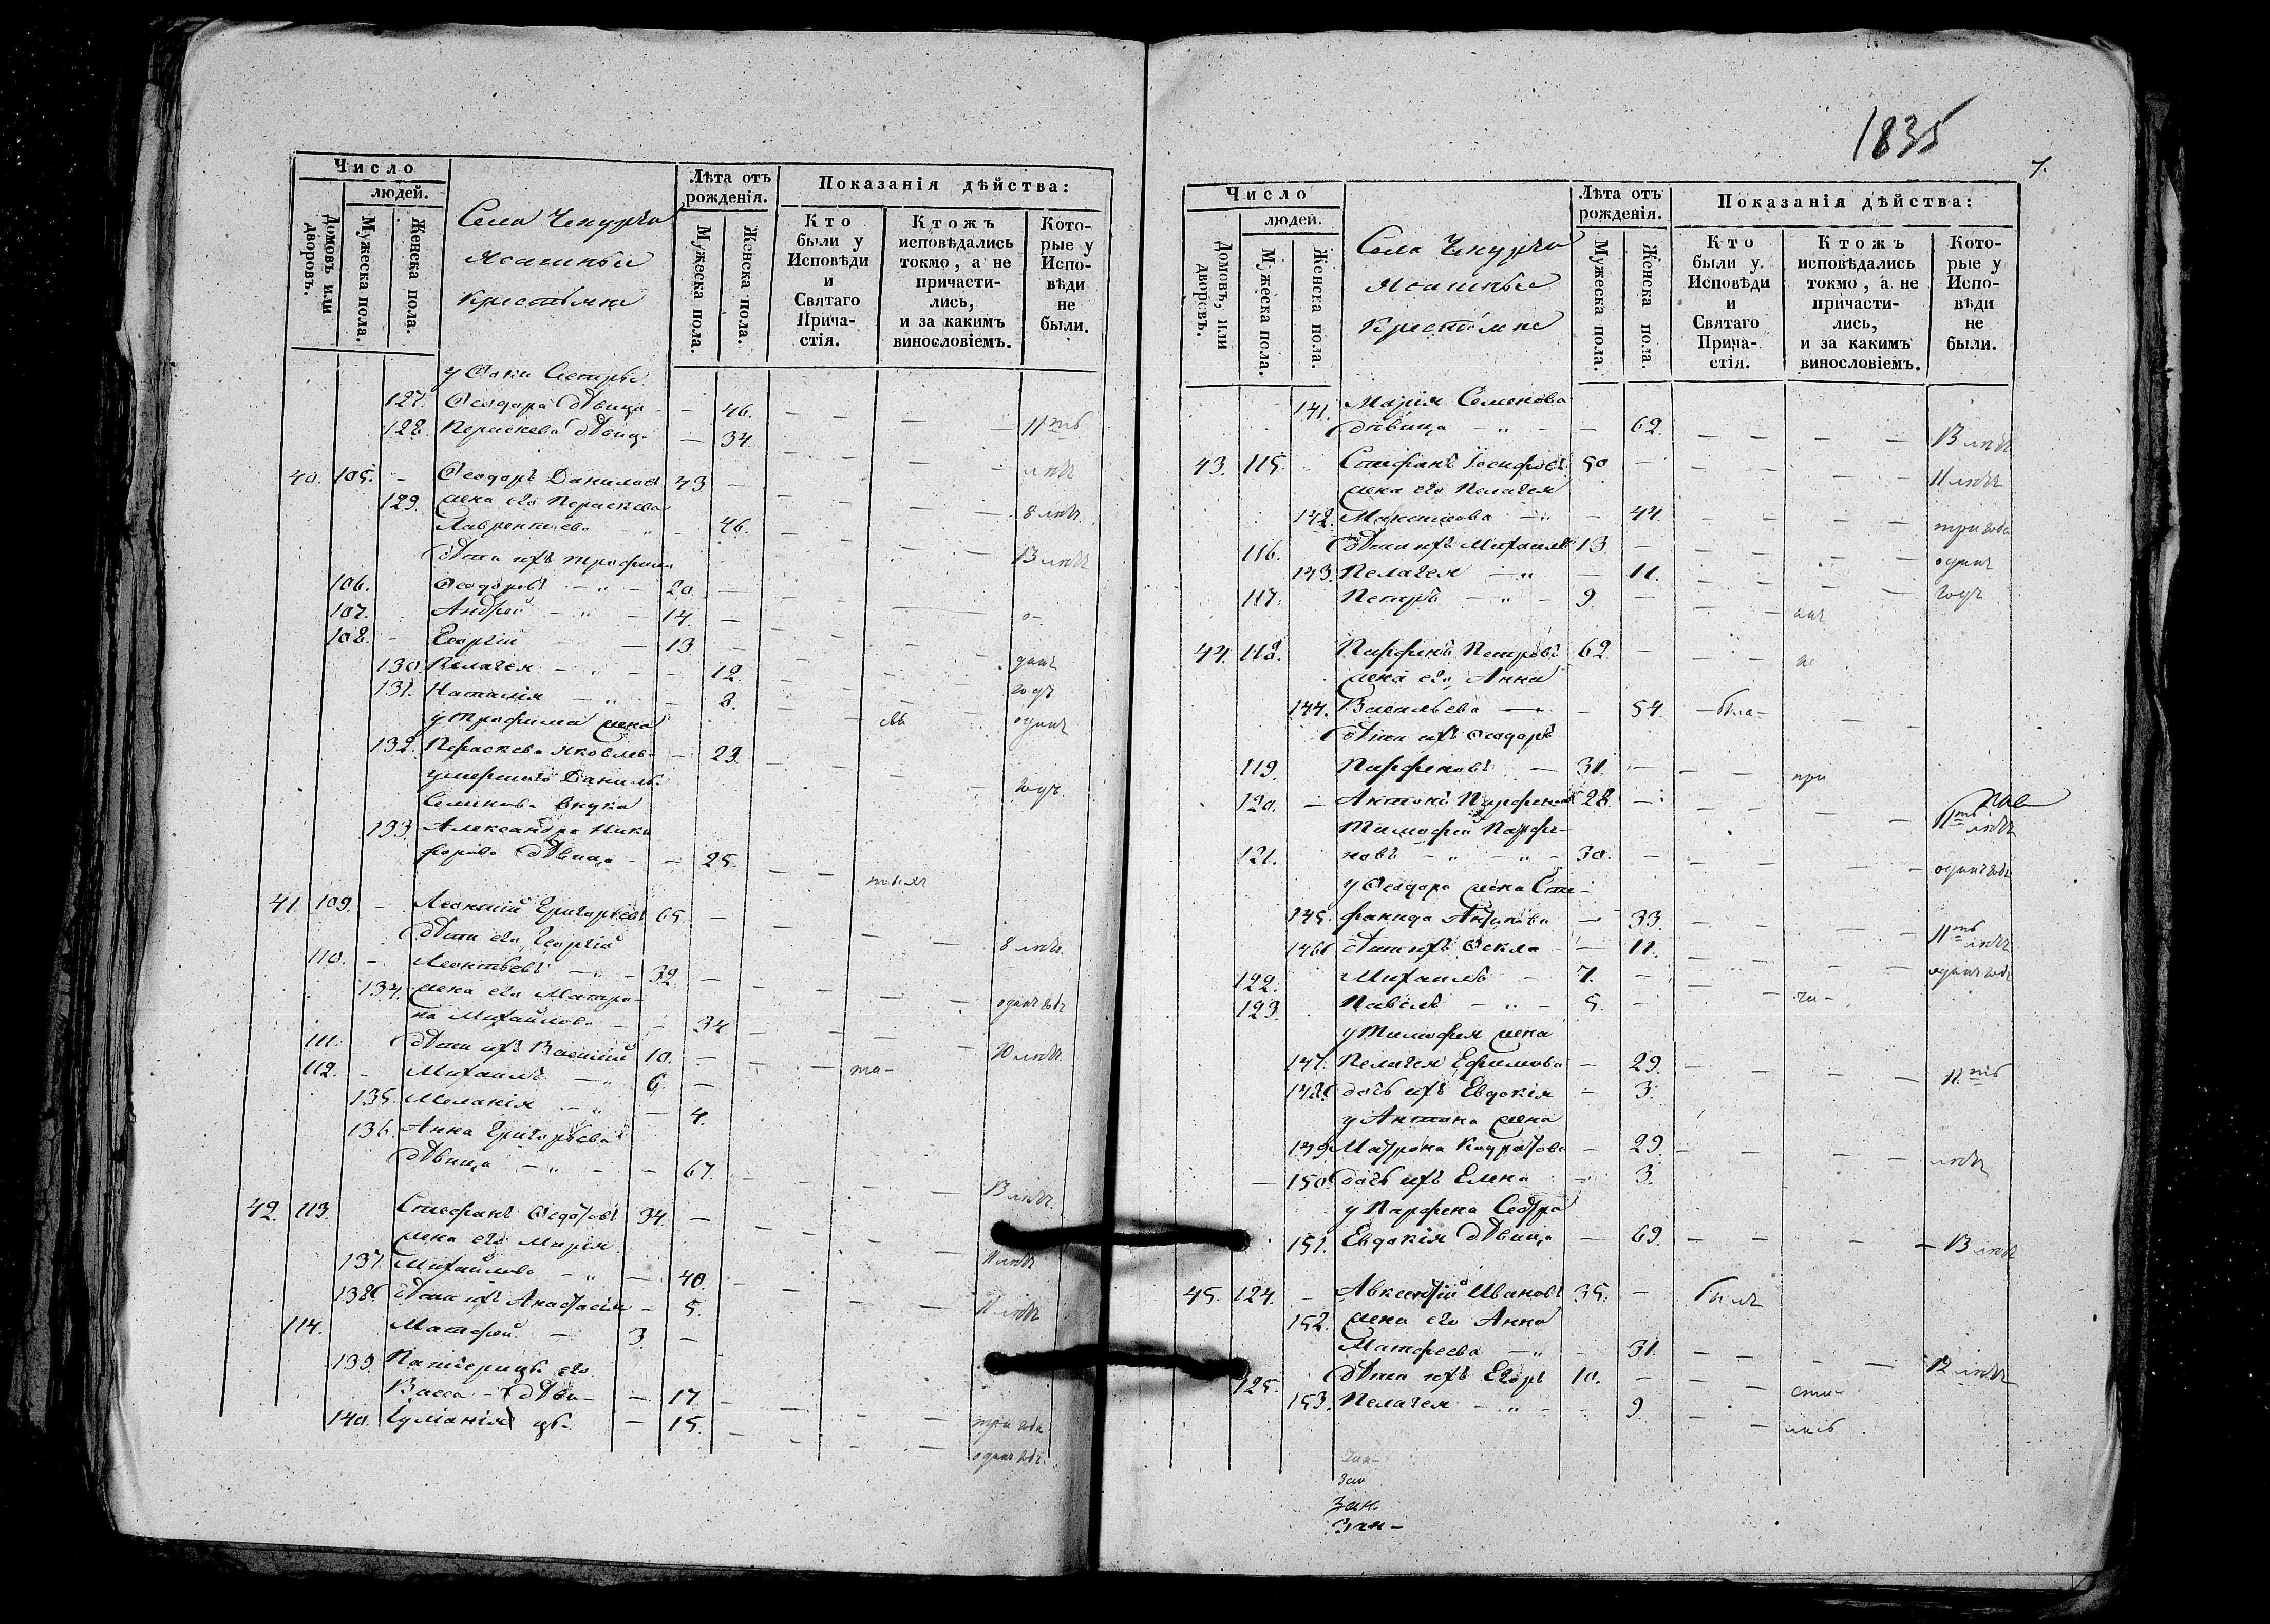 Число
людей.
Домовъ или дворовъ.
Мужеска пола.
Женска пола.
Села Чекурча
Ясашные
крестьяне
Лѣта отъ рожденія.
Мужеска пола.
Женска пола.
Показанія дѣйства:
Кто были у Исповѣди и Святаго Прича-стія.
Ктожъ исповѣдались токмо, а не причасти-лись, и за какимъ винословіемъ.
Кото-рые у Испо-вѣди не были.
127. Ѳеодора дѣвица — 46. 11ть
128. Параскева дѣвица — 34. лѣтъ
40. 105. Ѳеодоръ Даниловъ 43 — 8 лѣтъ
129. жена его Параскева
Лаврентьева — 46. 13 лѣтъ
Дѣти ихъ Трофимъ
106. Ѳеодоровъ — 20 —
107. Андрей — 14. — о-
108. Георгій — 13 — динъ
130. Пелагея — 12. годъ
131. Наталія — 8. одинъ
у Трофима жена
132. Параскева Яковлева — 23. годъ
умершаго Данила
Семенова внука
133. Александра Ники
форова дѣвица — 25.
41. 109. Леонтій Григорьевъ 65. — 8 лѣтъ
Дѣти его Георгій
110. Леонтьевъ — 32. — одинъ годъ
134. жена его Матро-
на Михайлова — 34 10 лѣтъ
111. Дѣти ихъ Василій 10. —
112. Михаилъ — 6. —
135. Меланія — 4.
136. Анна Григорьева
дѣвица — 67. 13 лѣтъ
42. 113. Стефанъ Ѳедотовъ 34. — 11 лѣтъ
жена его Марія
137. Михайлова — 40. 11 лѣтъ
138. Дѣти ихъ Анастасія — 5.
114. Матфей — 3. —
139. Патчерицы его
Васса — дѣви- — 17. три года
140. Іуліанія цы — 15. одинъ годъ
1835
7.
Число
людей.
Домовъ, или дворовъ.
Мужеска пола.
Женска пола.
Села Чекурча
Ясашные
Крестьяне
Лѣта отъ рожденія.
Мужеска пола.
Женска пола.
Показанія дѣйства:
Кто были у Исповѣди и Святаго Прича-стія.
Ктожъ исповѣдались токмо, а не причасти-лись, и за какимъ винословіемъ.
Кото-рые у Испо-вѣди не были.
141. Марія Семенова
дѣвица — 62. 13 лѣтъ
43. 115. Стефанъ Іосифовъ 50 — 11 лѣтъ
жена его Пелагея
142. Максимова — 44. три года
116. Дѣти ихъ Михаилъ 13 — одинъ
143. Пелагея — 11. годъ
117. Петръ — 9. —
44. 118. Парфенъ Петровъ 62 —
жена его Анна
144. Васильева — 54. — была —
Дѣти ихъ Ѳеодоръ
119. Парфеновъ — 31. — при
120. Антонъ Парфеновъ 28. — 11ть лѣтъ
Тимофей Парфе-
121. новъ — 30. — одинъ годъ
у Ѳеодора жена Сте-
145. фанида Антипова — 33. 11ть лѣтъ
146 Дѣти ихъ Ѳекла — 11. одинъ годъ
122. Михаилъ — 7. —
123. Павелъ — 5. —
у Тимофея жена
147. Пелагея Ефимова — 29. 11ть
148. дочь ихъ Евдокія — 3.
у Антона жена
149 Матрона Кодратова — 29. лѣтъ
150 дочь ихъ Елена — 3.
у Парфена Сестра
151. Евдокія дѣвица — 69. — 13 лѣтъ
45. 124. Авксентій Ивановъ 35. — былъ
152. жена его Анна
Матфеева — 31. 12 лѣтъ
125. Дѣти ихъ Егоръ 10. —
153. Пелагея — 9.